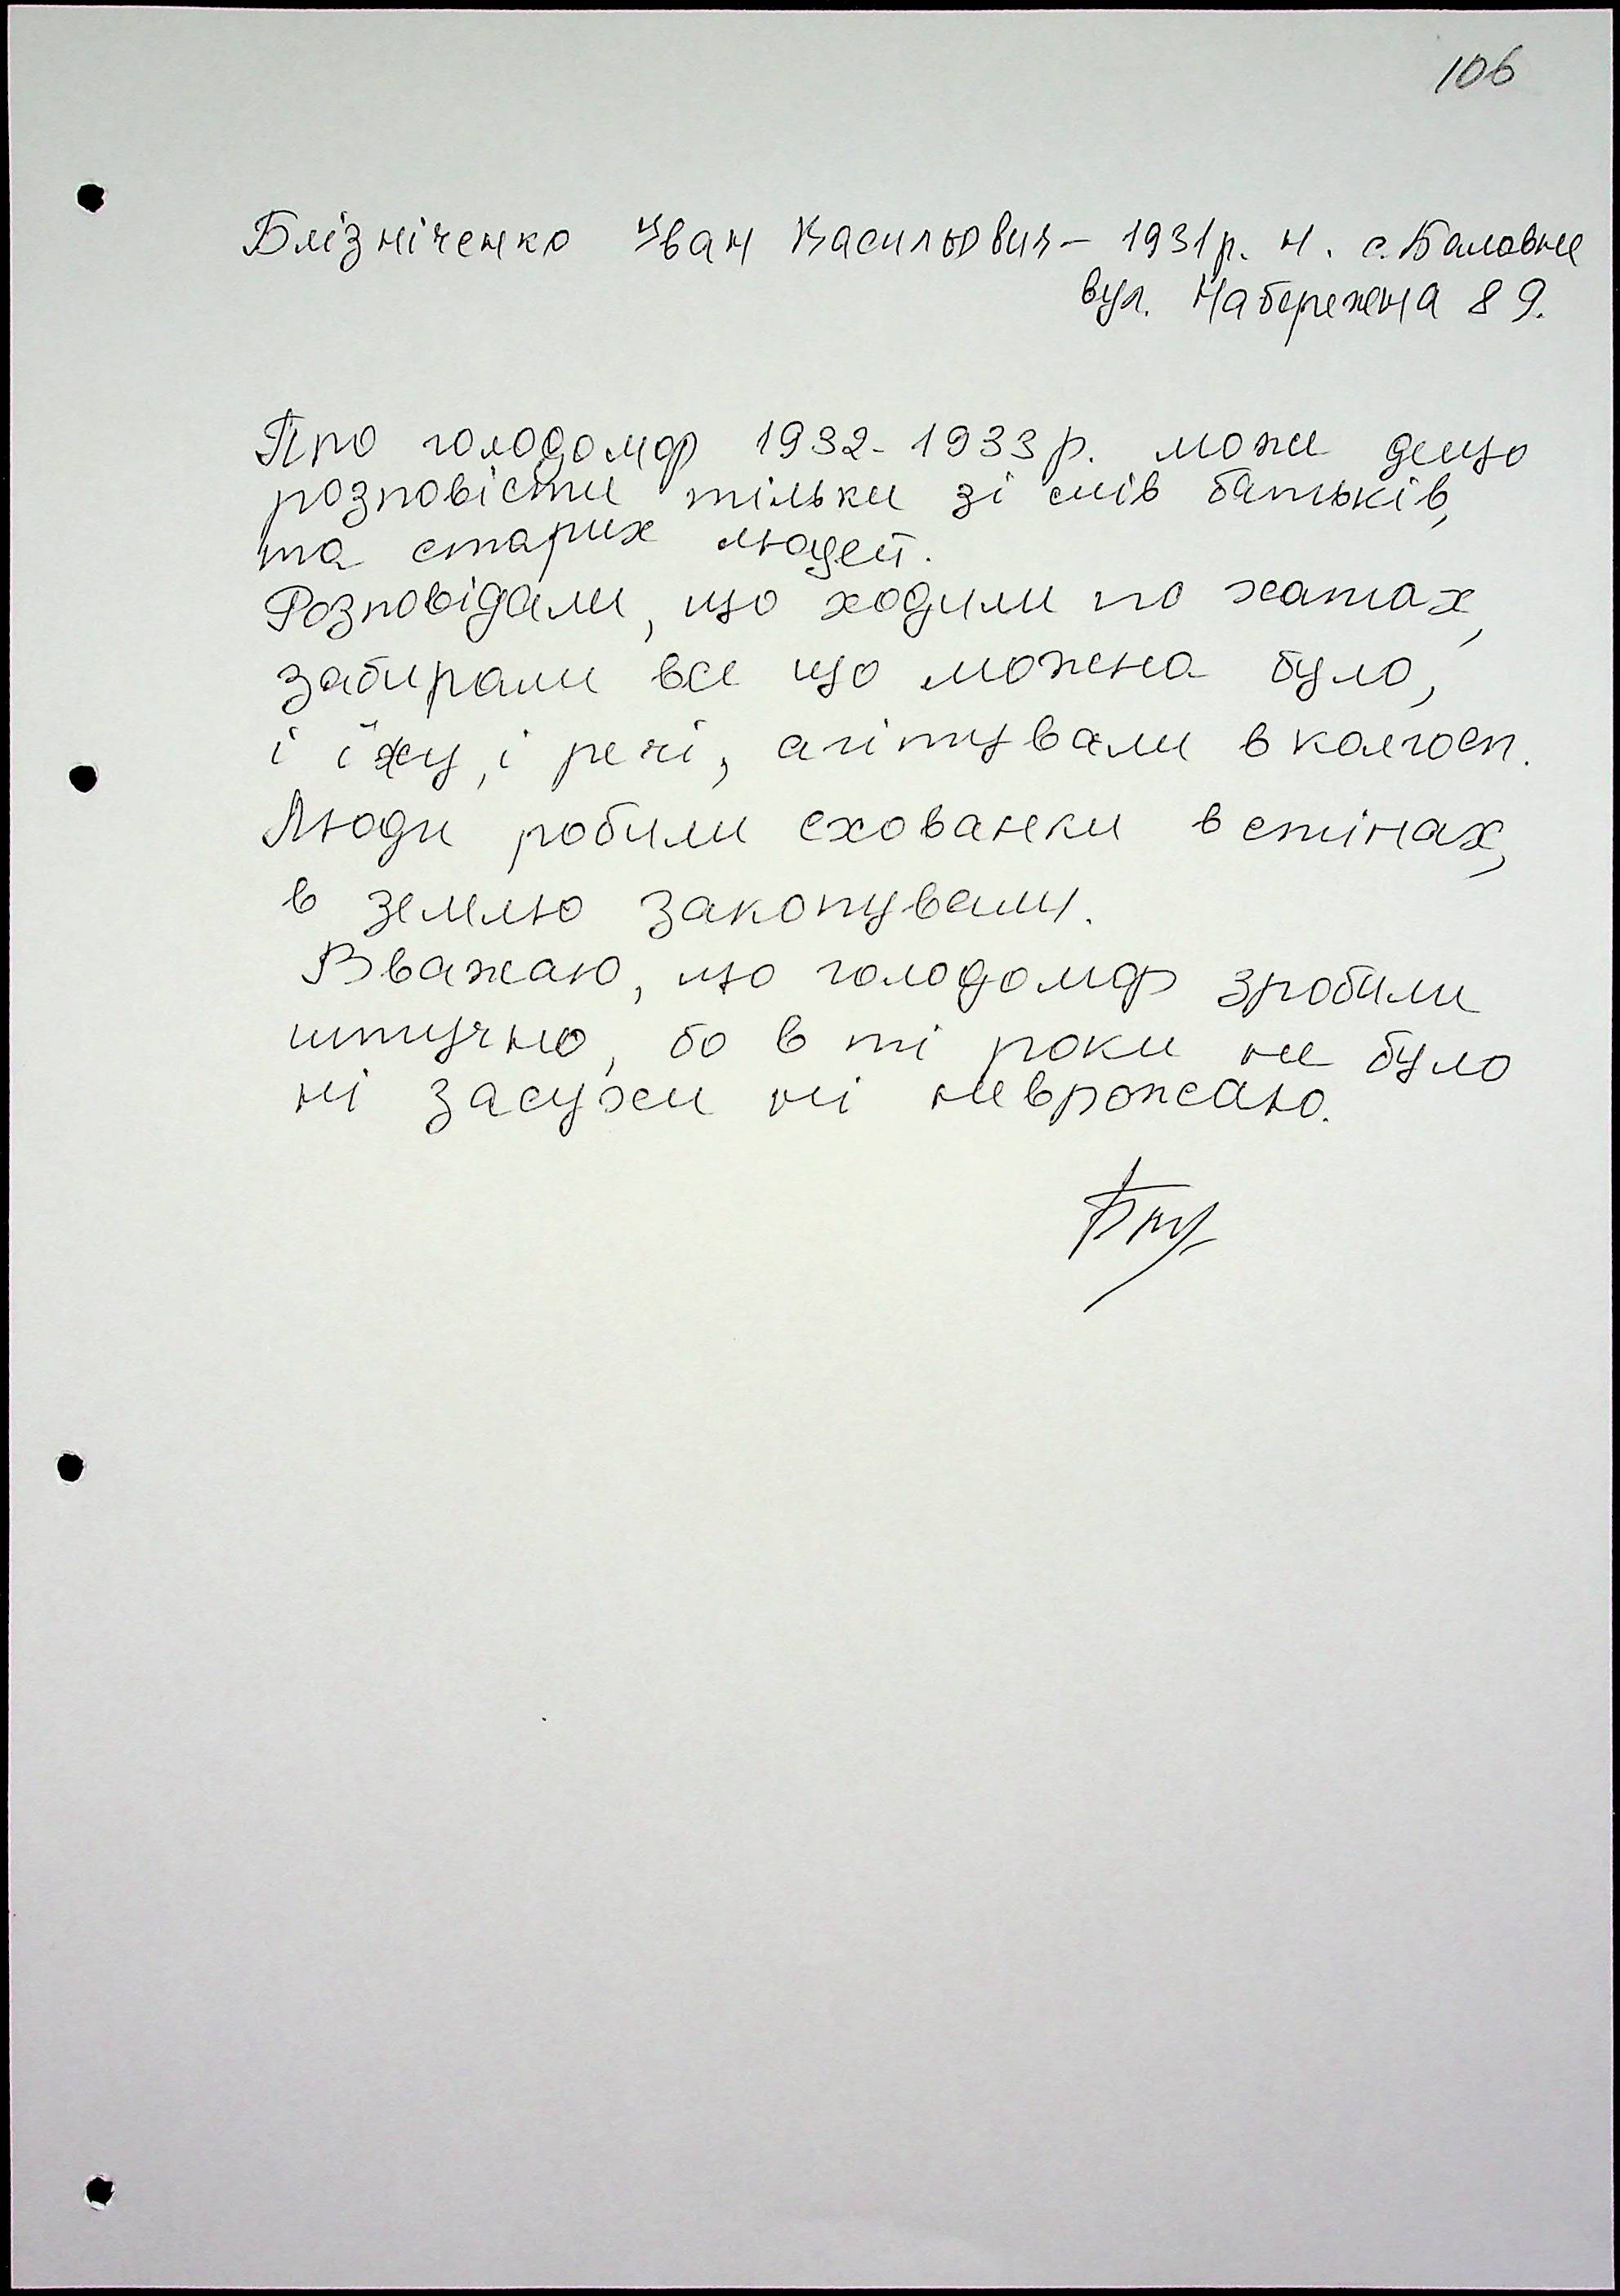 106
Блізніченко Іван Васильович – 1931р. н. с. Баловне
вул. Набережна 89.
Про голодомор 1932-1933р. може дещо
розповісти тільки зі слів батьків,
та старих людей.
Розповідали, що ходили по хатах,
забирали все що можна було,
і їжу, і речі, агітували в колгосп.
Люди робили схованки в стінах,
в землю закопували.
Вважаю, що голодомор зробили
штучно, бо в ті роки не було
ні засухи ні неврожаю.